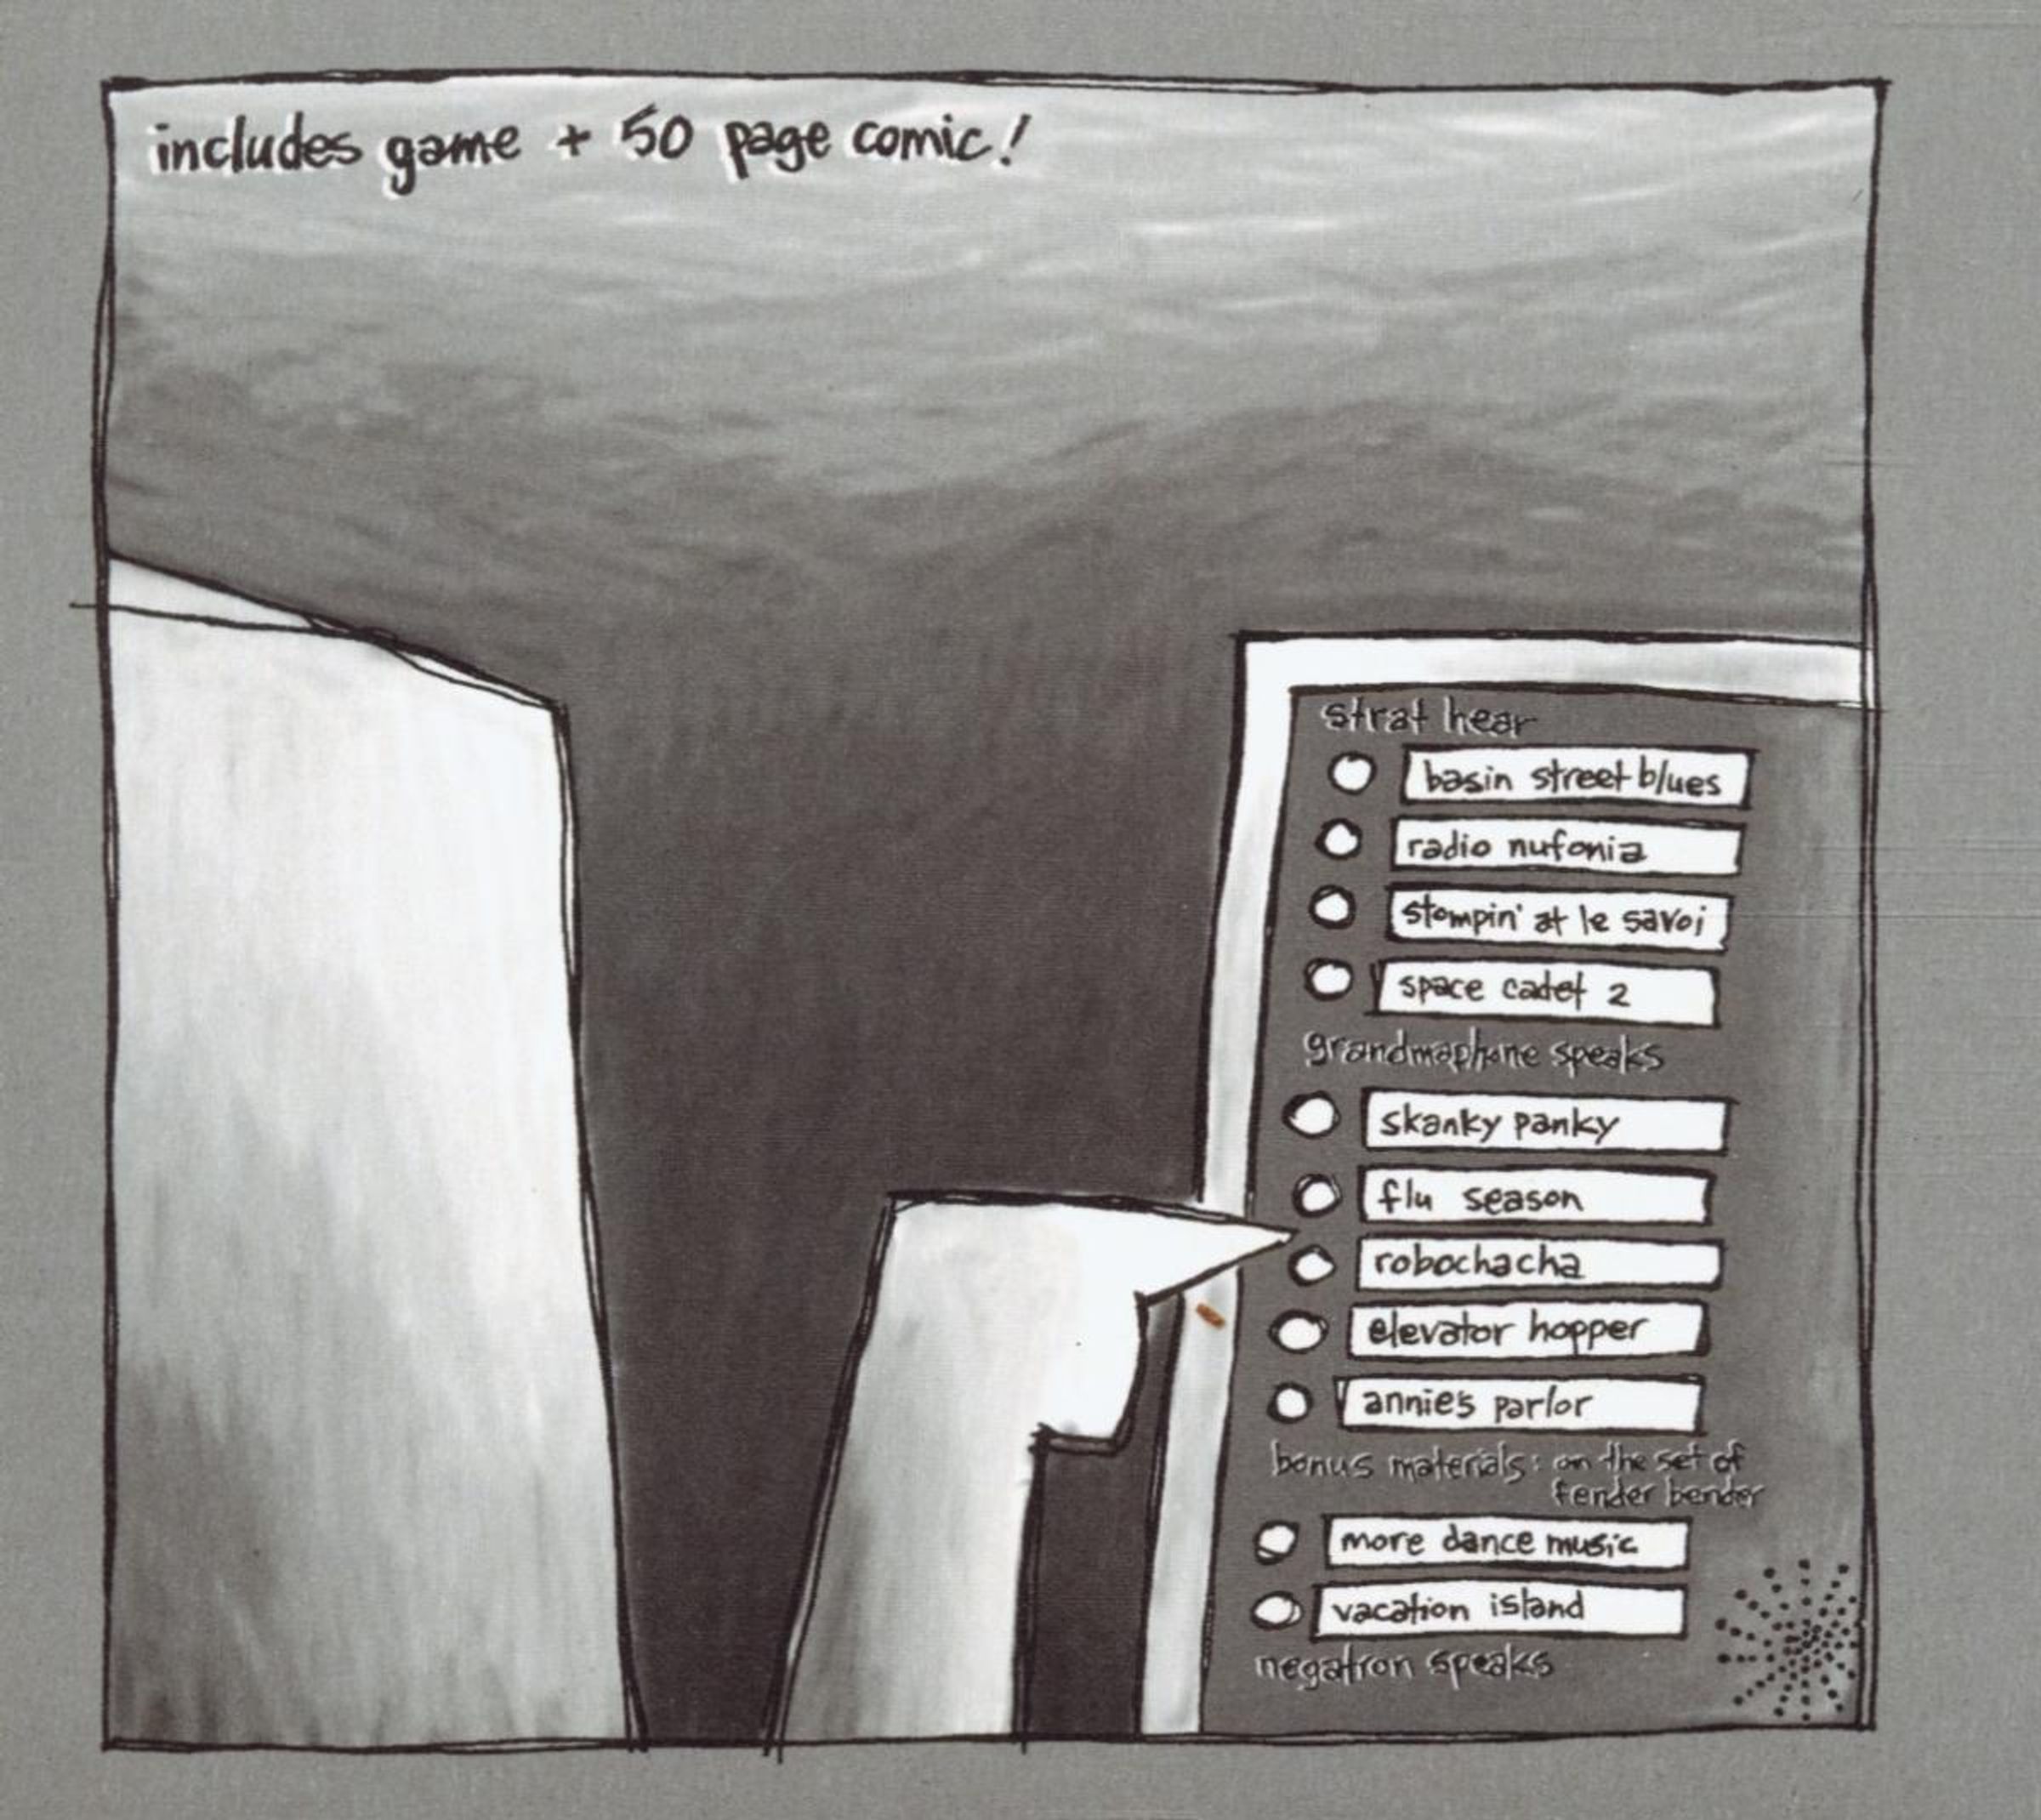 includes game + 50 page comic!
strat hear
basin street blues
radio nufonia
stompin' at le savoi
space cadet 2
grandmaphone speaks
skanky panky
flu season
robochacha
elevator hopper
annie's parlor
bonus materials: on the set of
fender bender
more dance music
vacation island
negatron speaks